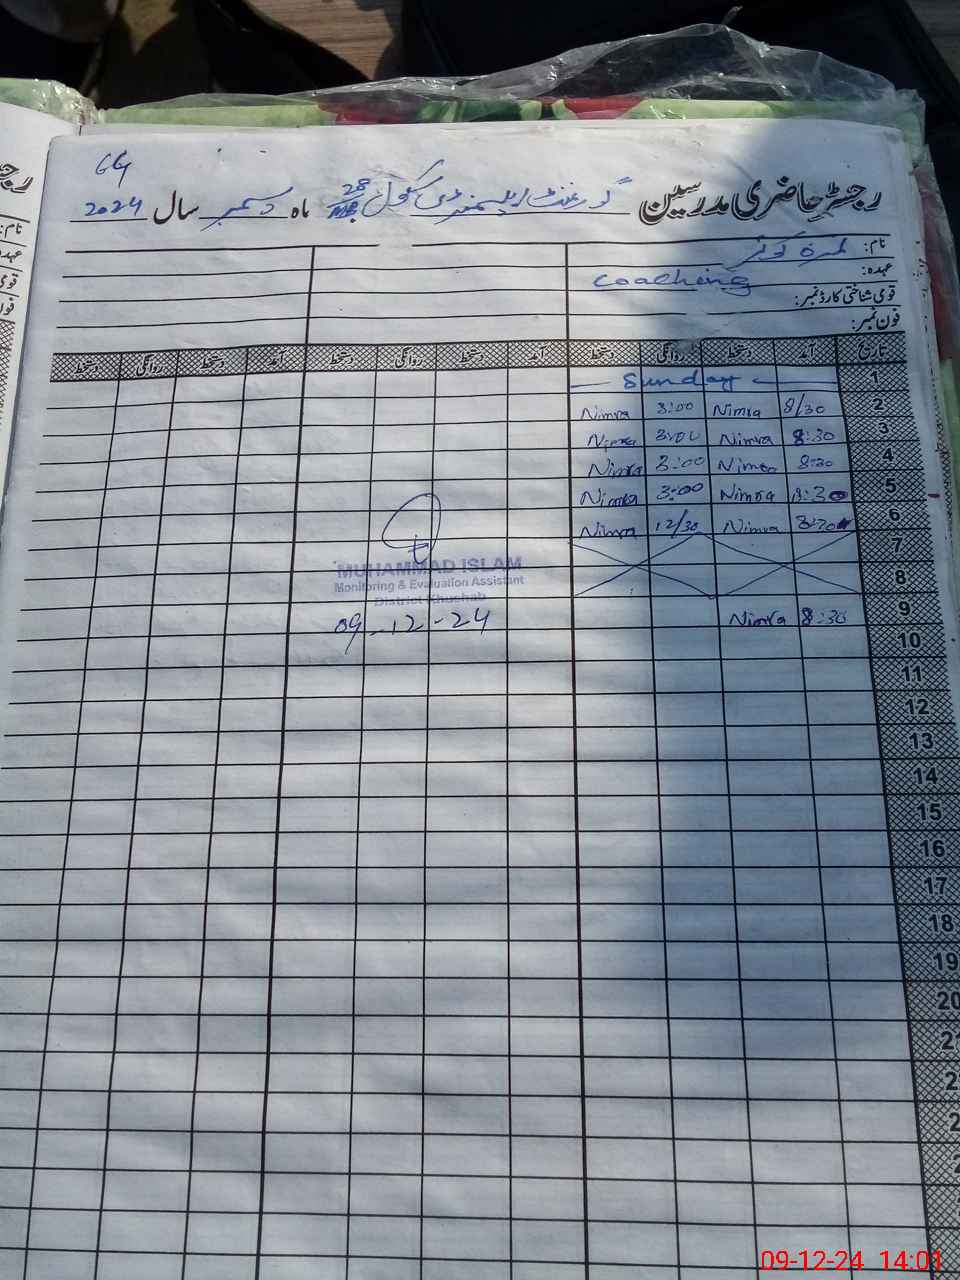 66
رجسٹر حاضری مدرسین گورنمنٹ ایلیمنٹری سکول 28 ماہ دسمبر سال 2024
نام: نمرہ کوثر
عہدہ: Coaching
قومی شناختی کارڈ نمبر:
فون نمبر:
تاریخ آمد دستخط روانگی دستخط آمد دستخط روانگی دستخط آمد دستخط روانگی دستخط
1 Sunday
2 8/30 Nimra 3:00 Nimra
3 8:30 Nimra 3:00 Nimra
4 8:30 Nimra 3:00 Nimra
5 8:30 Nimra 3:00 Nimra
6 Nimra 12/30 Nimra
7
8
9 8:30 Nimra
MUHAMMAD ISLAM
Monitoring & Evaluation Assistant
District Khushab
09-12-24
10
11
12
13
14
15
16
17
18
19
20
رجسٹ
نام:
عہدہ
قومی
فون
09-12-24 14:01